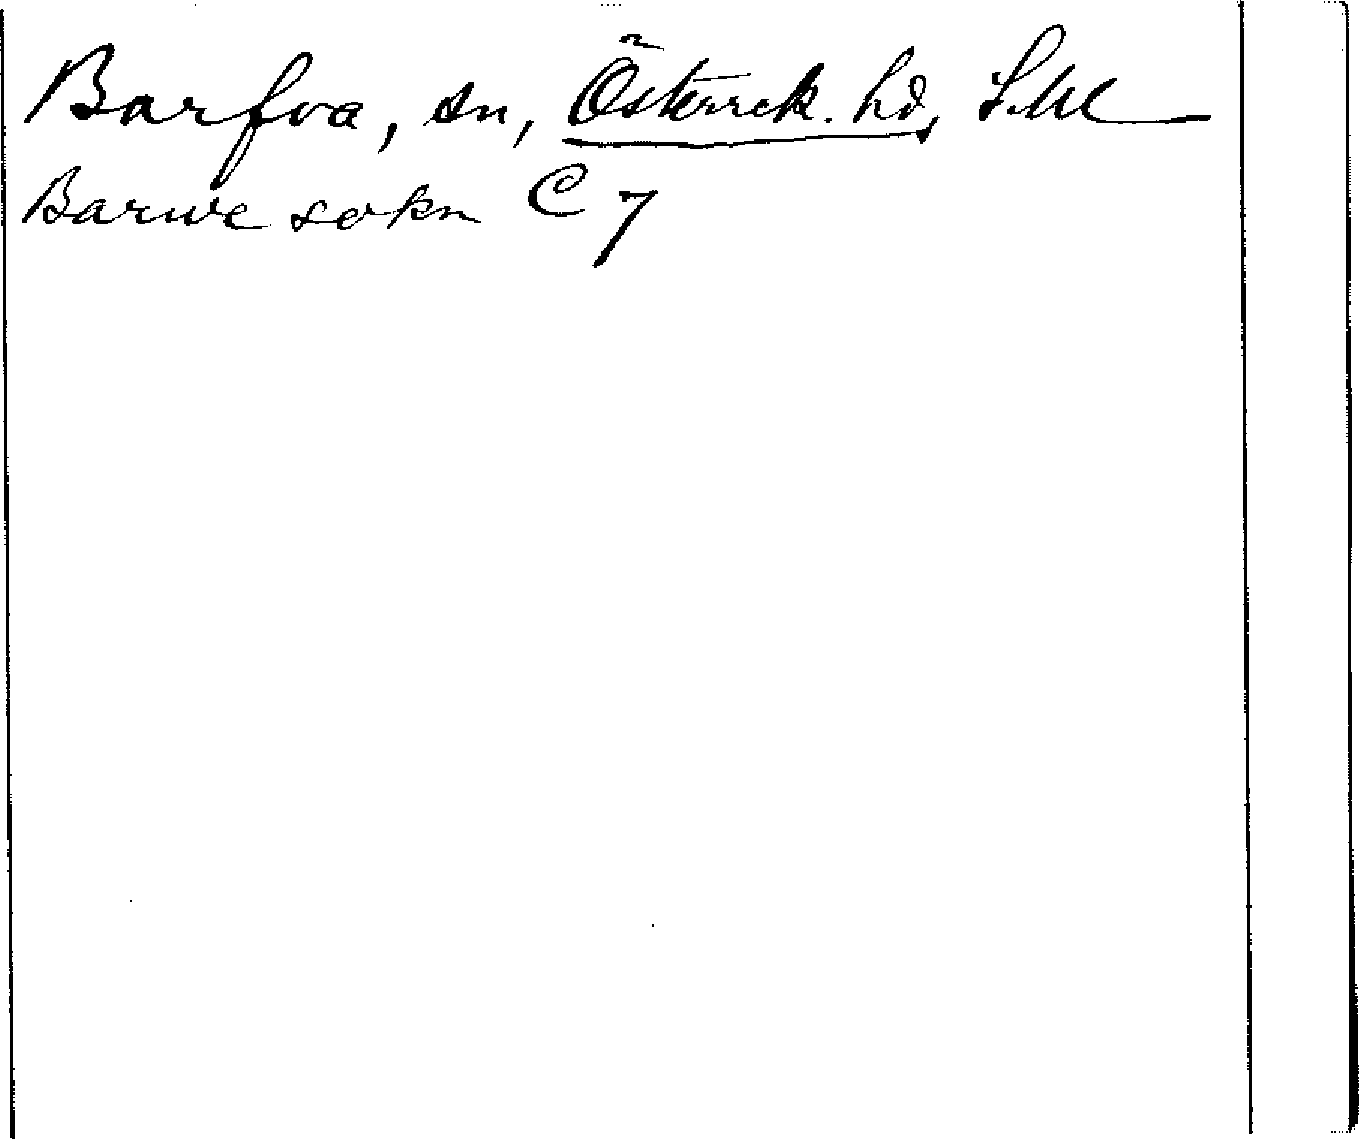 Barfva, sn, Österrek. hd, Sml
Barwe sokn C 7